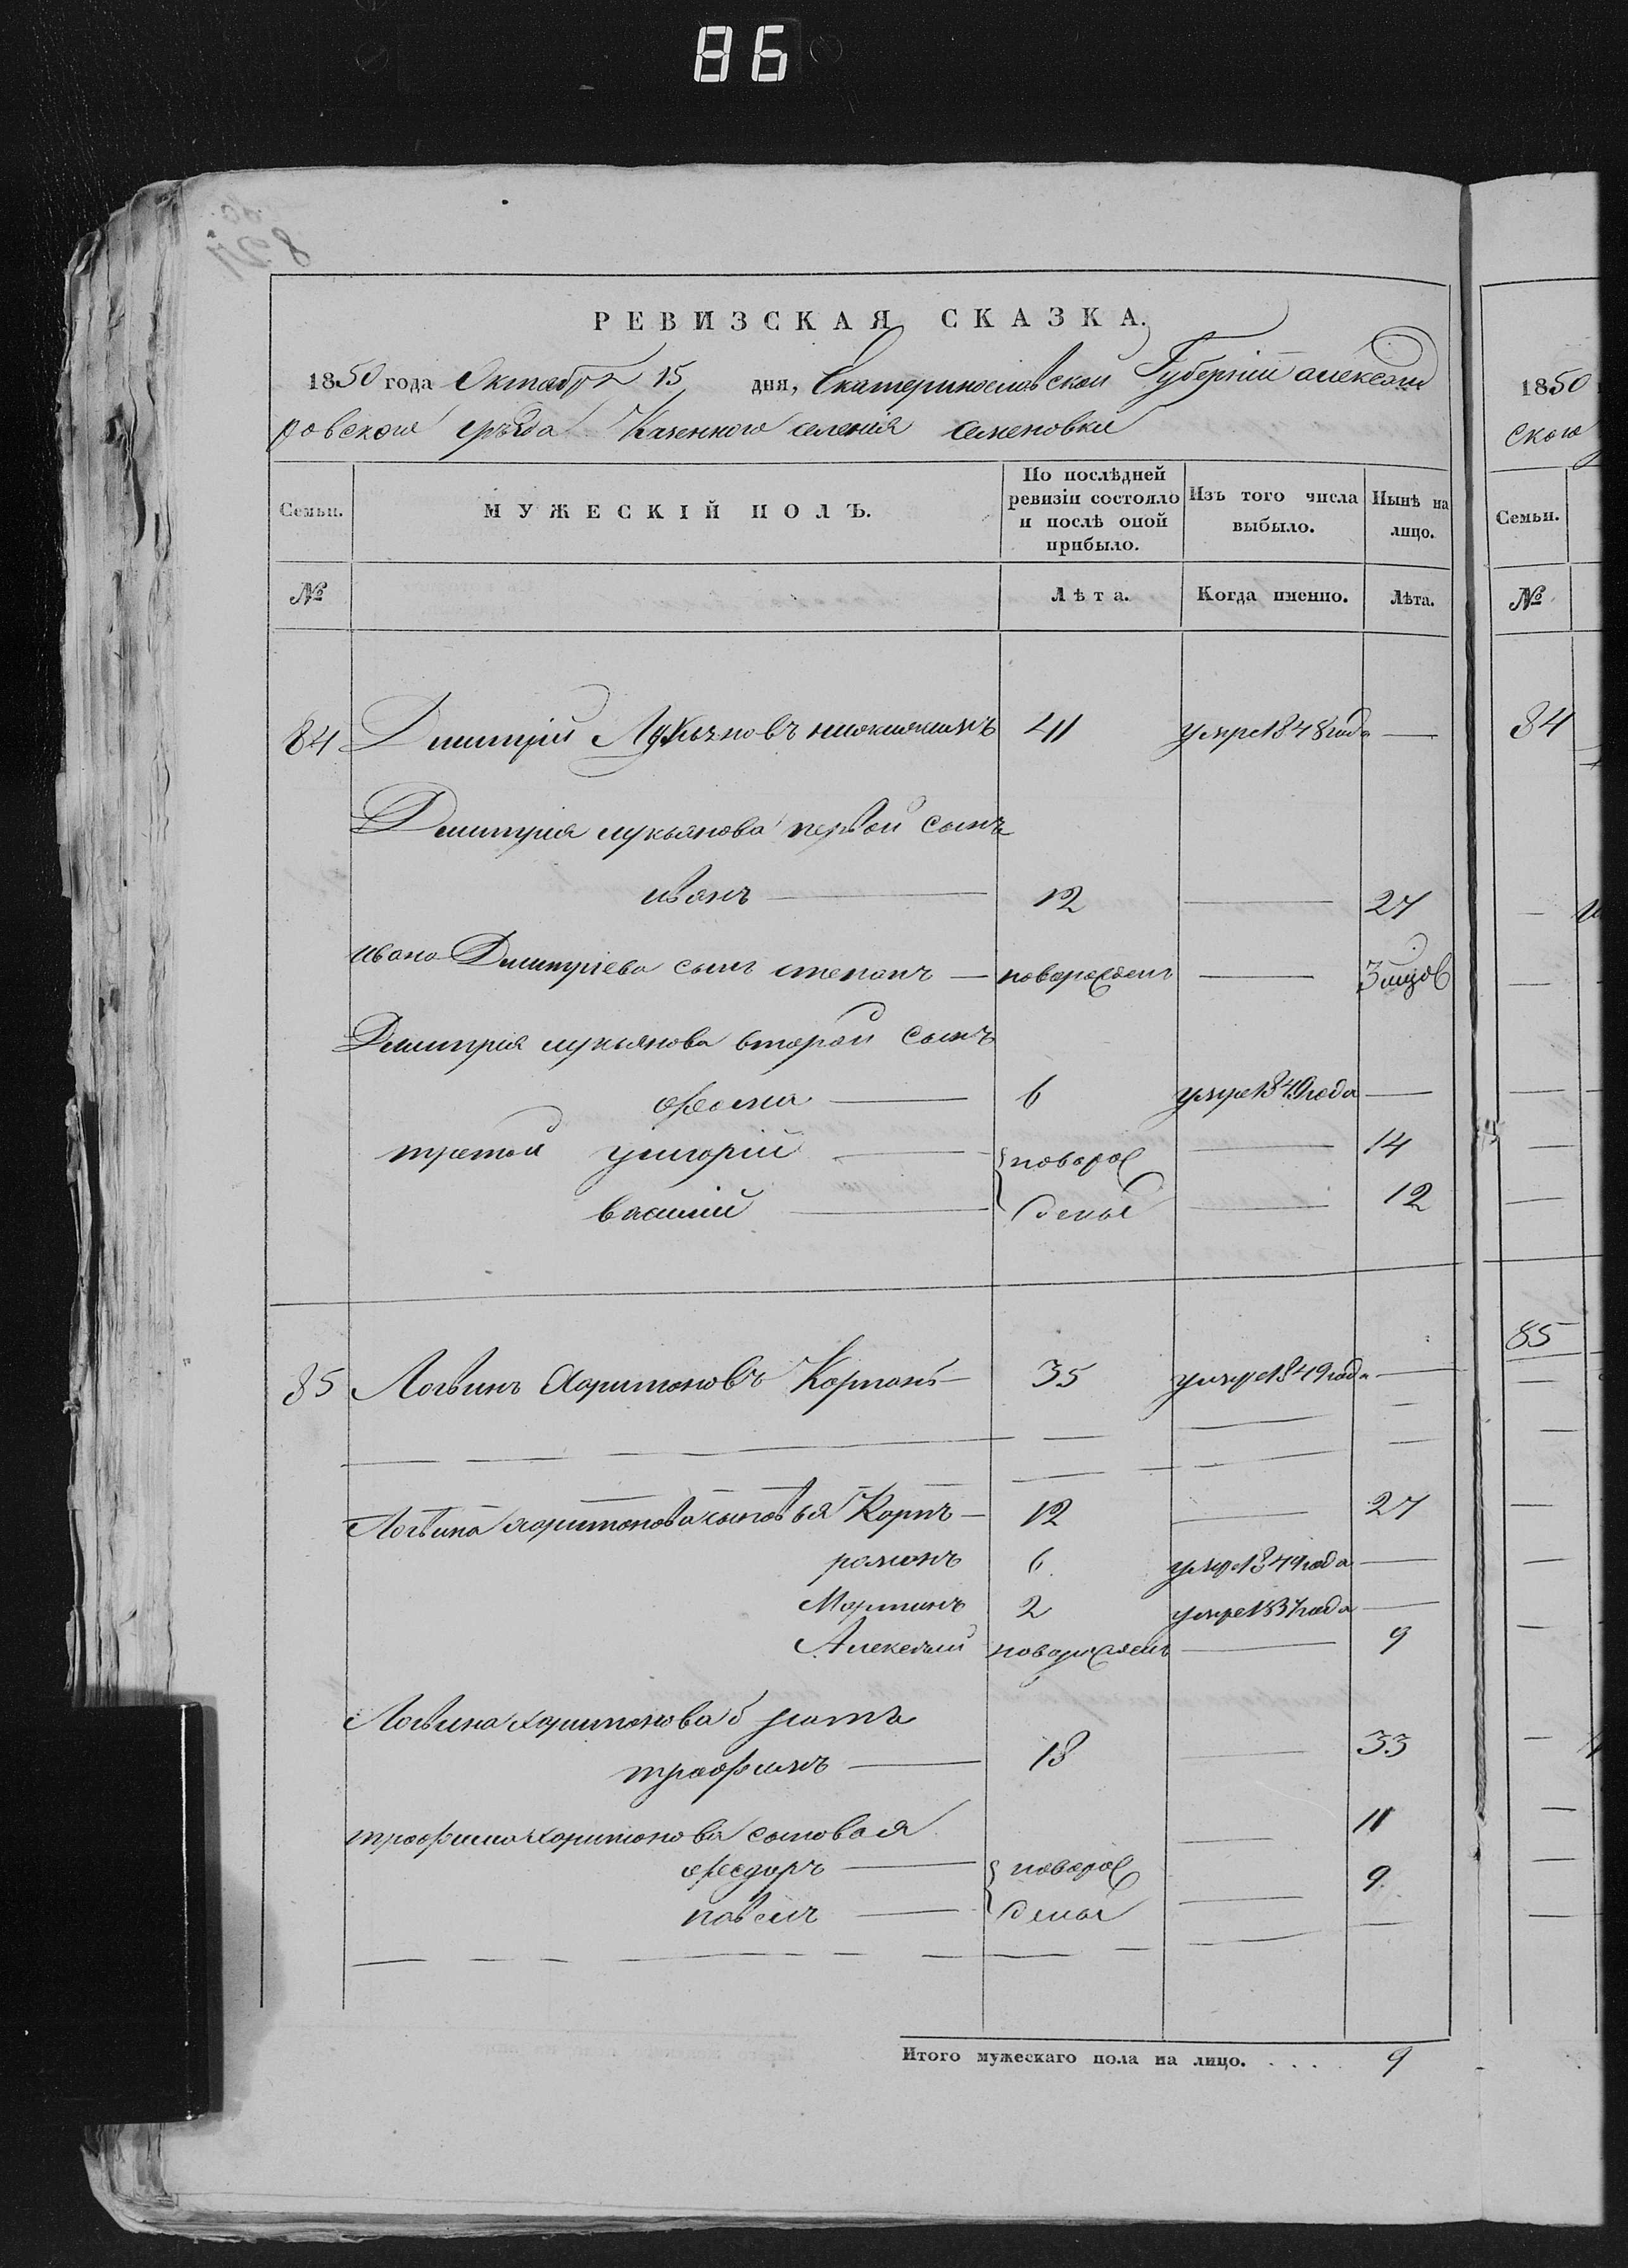 86
РЕВИЗСКАЯ СКАЗКА.
1850 года Октября 15 дня, Екатеринославской Губерніи александ
ровского уѣзда Казенного селенія Семеновки
Семьи.
МУЖЕСКІЙ ПОЛЪ.
По послѣдней ревизіи состояло и послѣ оной прибыло.
Изъ того числа выбыло.
Нынѣ на лицо.
№
Лѣта.
Когда именно.
Лѣта.
84 Дмитрій Лукьяновъ 41 умре 1848 года —
Дмитрія лукьянова первой сынъ
иванъ — 12 — 27
ивана Дмитріева сынъ степанъ — новорожденъ — 3 мцов
Дмитрия лукьянова второй сынъ
фома — 6 умре 1849 года —
третой григорій — новорож — 14
василій — деные — 12
85 Логвинъ Харитоновъ Корпань 35 умре 1849 года —
Логвина харитонова сыновья Карпъ — 12 — 27
романъ 6 умре 1849 года —
Мартинъ 2 умре 1837 года —
Алексѣий новорожденъ — 9
Логвина харитонова братъ
трофимъ — 18 — 33
трофима харитонова сыновья
феодоръ — новорож — 11
павелъ — деные — 9
Итого мужескаго пола на лицо. . . . . 9
1850
ского
Семьи.
№
84
85